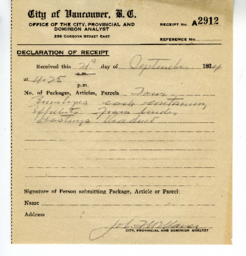 City of Vancouver, B. C.
OFFICE OF THE CITY, PROVINCIAL AND
DOMINION ANALYST
RECEIPT No. A2912
236 CORDOVA STREET EAST
REFERENCE No.
DECLARATION OF RECEIPT
Received this 21st day of September 193
a.m.
at 4.25
p.m.
No. of Packages, Articles, Parcels Four
envelopes each containing
exhibits from
Signature of Person submitting Package, Article or Parcel:
Name
Address
CITY, PROVINCIAL AND DOMINION ANALYST